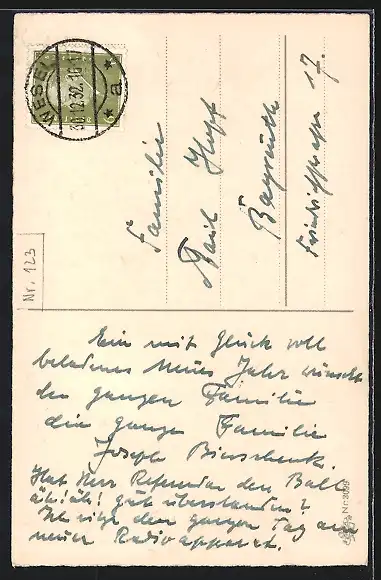 WESEL
30.12.32. 16-17
* a *
Familie
Paul Hopf
Bayreuth
Friedrichstrasse 17.
Nr. 123
Ein mit Glück voll
beladenes neues Jahr wünscht
der ganzen Familie
die ganze Familie
Joseph Bierschenk.
Hat Herr Referendar den Ball
äh! äh! gut überstanden?
Ich sitze den ganzen Tag am
neuen Radioapparat.